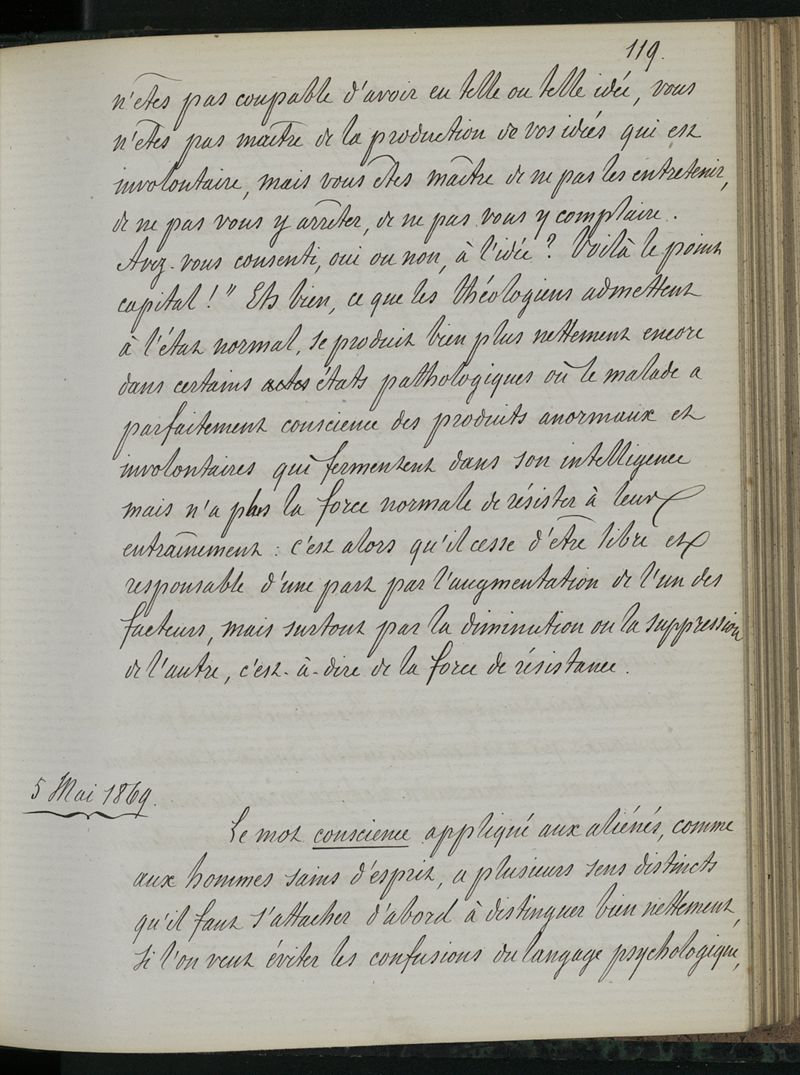 119.
n'êtes pas coupable d'avoir eu telle ou telle idée, vous
n'êtes pas maître de la production de vos idées qui est
involontaire, mais vous êtes maître de ne pas les entretenir,
de ne pas vous y arrêter, de ne pas vous y complaire.
Avez-vous consenti, oui ou non, à l'idée ? Voilà le point
capital ! " Eh bien, ce que les théologiens admettent
à l'état normal, se produit bien plus nettement encore
dans certains actes états pathologiques où le malade a
parfaitement conscience des produits anormaux et
involontaires qui fermentent dans son intelligence
mais n'a plus la force normale de résister à leur
entraînement : c'est alors qu'il cesse d'être libre et
responsable d'une part par l'augmentation de l'un des
facteurs, mais surtout par la diminution ou la suppression
de l'autre, c'est-à-dire de la force de résistance.
5 Mai 1869.
Le mot conscience appliqué aux aliénés, comme
aux hommes sains d'esprit, a plusieurs sens distincts
qu'il faut s'attacher d'abord à distinguer bien nettement,
si l'on veut éviter les confusions du langage psychologique,